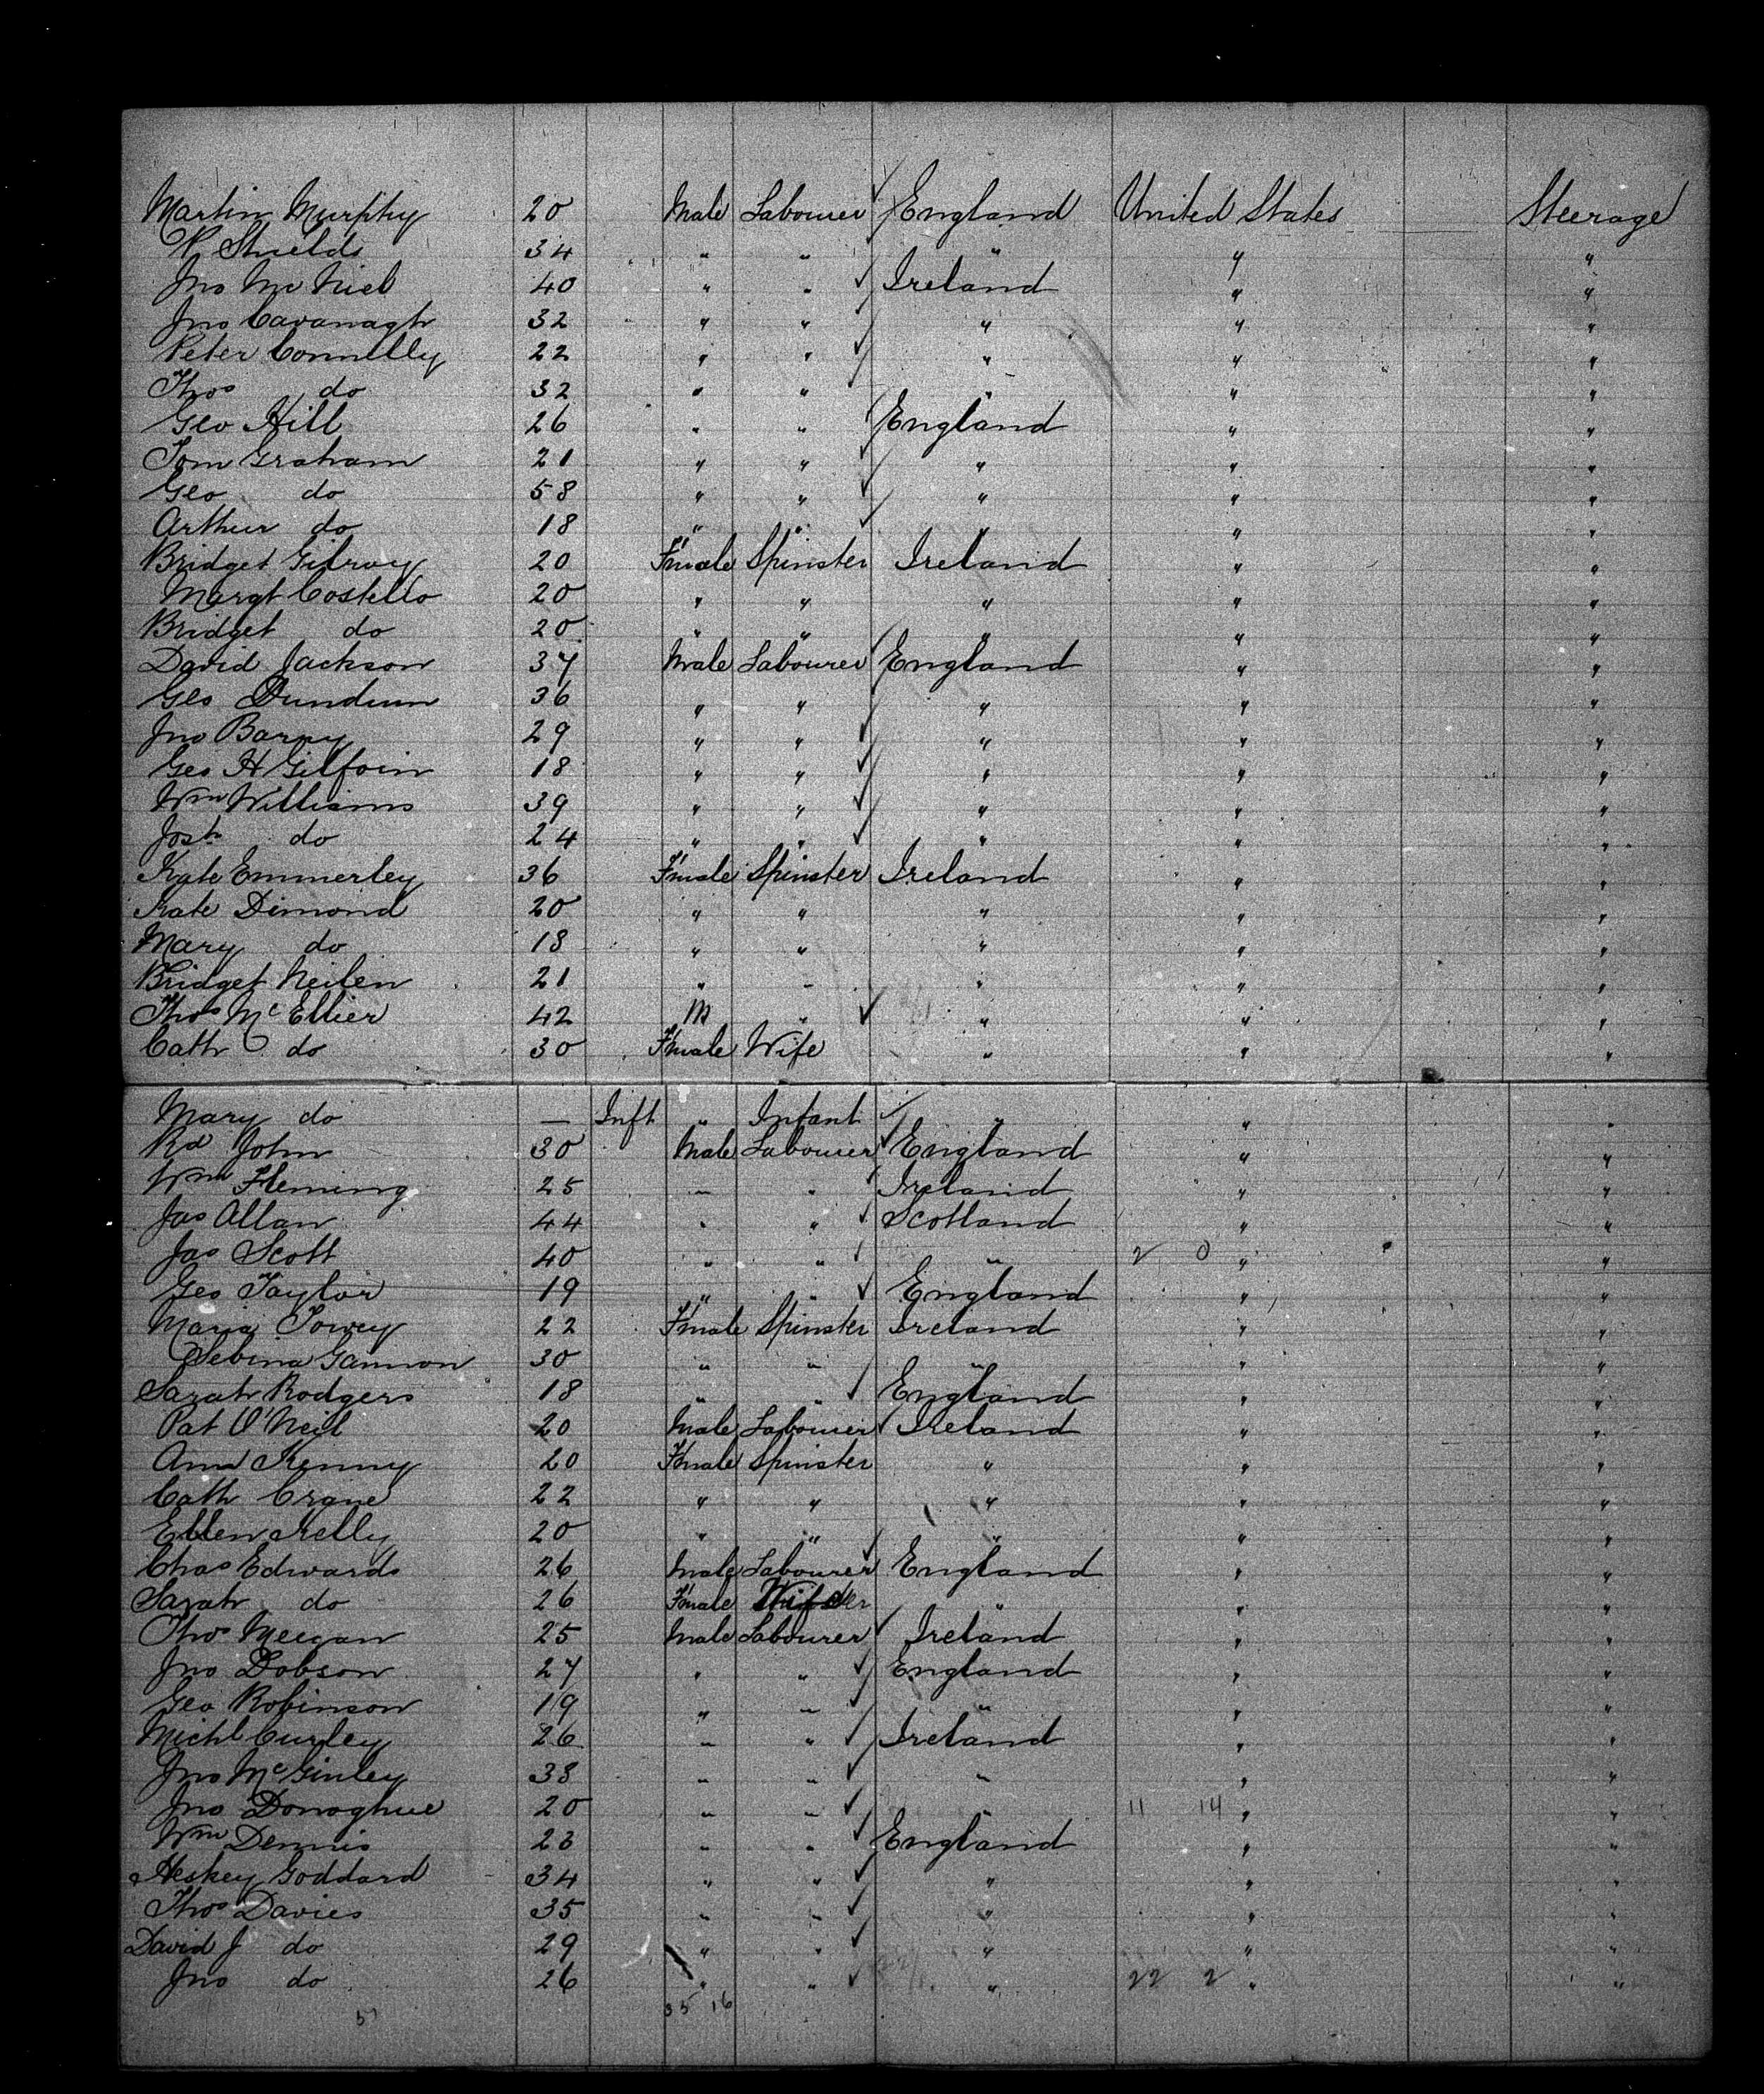 Martin Murphy 20 Male Labourer England United States Steerage
P Shields 34 " " " " "
Jno Mc Niel 40 " " Ireland " "
Jno Cavanagh 32 " " " " "
Peter Connelly 22 " " " " "
Thos do 32 " " " " "
Geo Hill 26 " " England " "
Tom Graham 21 " " " " "
Geo do 58 " " " " "
Arthur do 18 " " " " "
Bridget Gilroy 20 Female Spinster Ireland " "
Margt Costello 20 " " " " "
Bridget do 20 " " " " "
David Jackson 37 Male Labourer England " "
Geo 36 " " " " "
Jno Barry 29 " " " " "
Geo H Gilfoin 18 " " " " "
Wm Williams 39 " " " " "
Josh do 24 " " " " "
Kate Emmerley 36 Female Spinster Ireland " "
Kate Dimond 20 " " " " "
Mary do 18 " " " " "
Bridget Neilen 21 " " " " "
Thos McEllier 42 M " " " "
Cath do 30 Female Wife " " "
Mary do — Inft " Infant " " "
Rd John 30 Male Labourer England " "
Wm Fleming 25 " " Ireland " "
Jas Allan 44 " " Scotland " "
Jas Scott 40 " " " 2 0 " "
Geo Taylor 19 " " England " "
Maria Towey 22 Female Spinster Ireland " "
Sebina Gannon 30 " " " " "
Sarah Rodgers 18 " " England " "
Pat O'Neil 20 Male Labourer Ireland " "
Ann Kenny 20 Female Spinster " " "
Cath Crane 22 " " " " "
Ellen Kelly 20 " " " " "
Chas Edwards 26 Male Labourer England " "
Sarah do 26 Female Wife " " "
Thos Meegan 25 Male Labourer Ireland " "
Jno Dobson 27 " " England " "
Geo Robinson 19 " " " " "
Michl Curley 26 " " Ireland " "
Jno McGinley 38 " " " " "
Jno Donoghue 20 " " " 11 14 " "
Wm Dennis 23 " " England " "
Heskey Goddard 34 " " " " "
Thos Davies 35 " " " " "
David J do 29 " " " " "
Jno do 26 " " " 22 2 " "
51 35 16